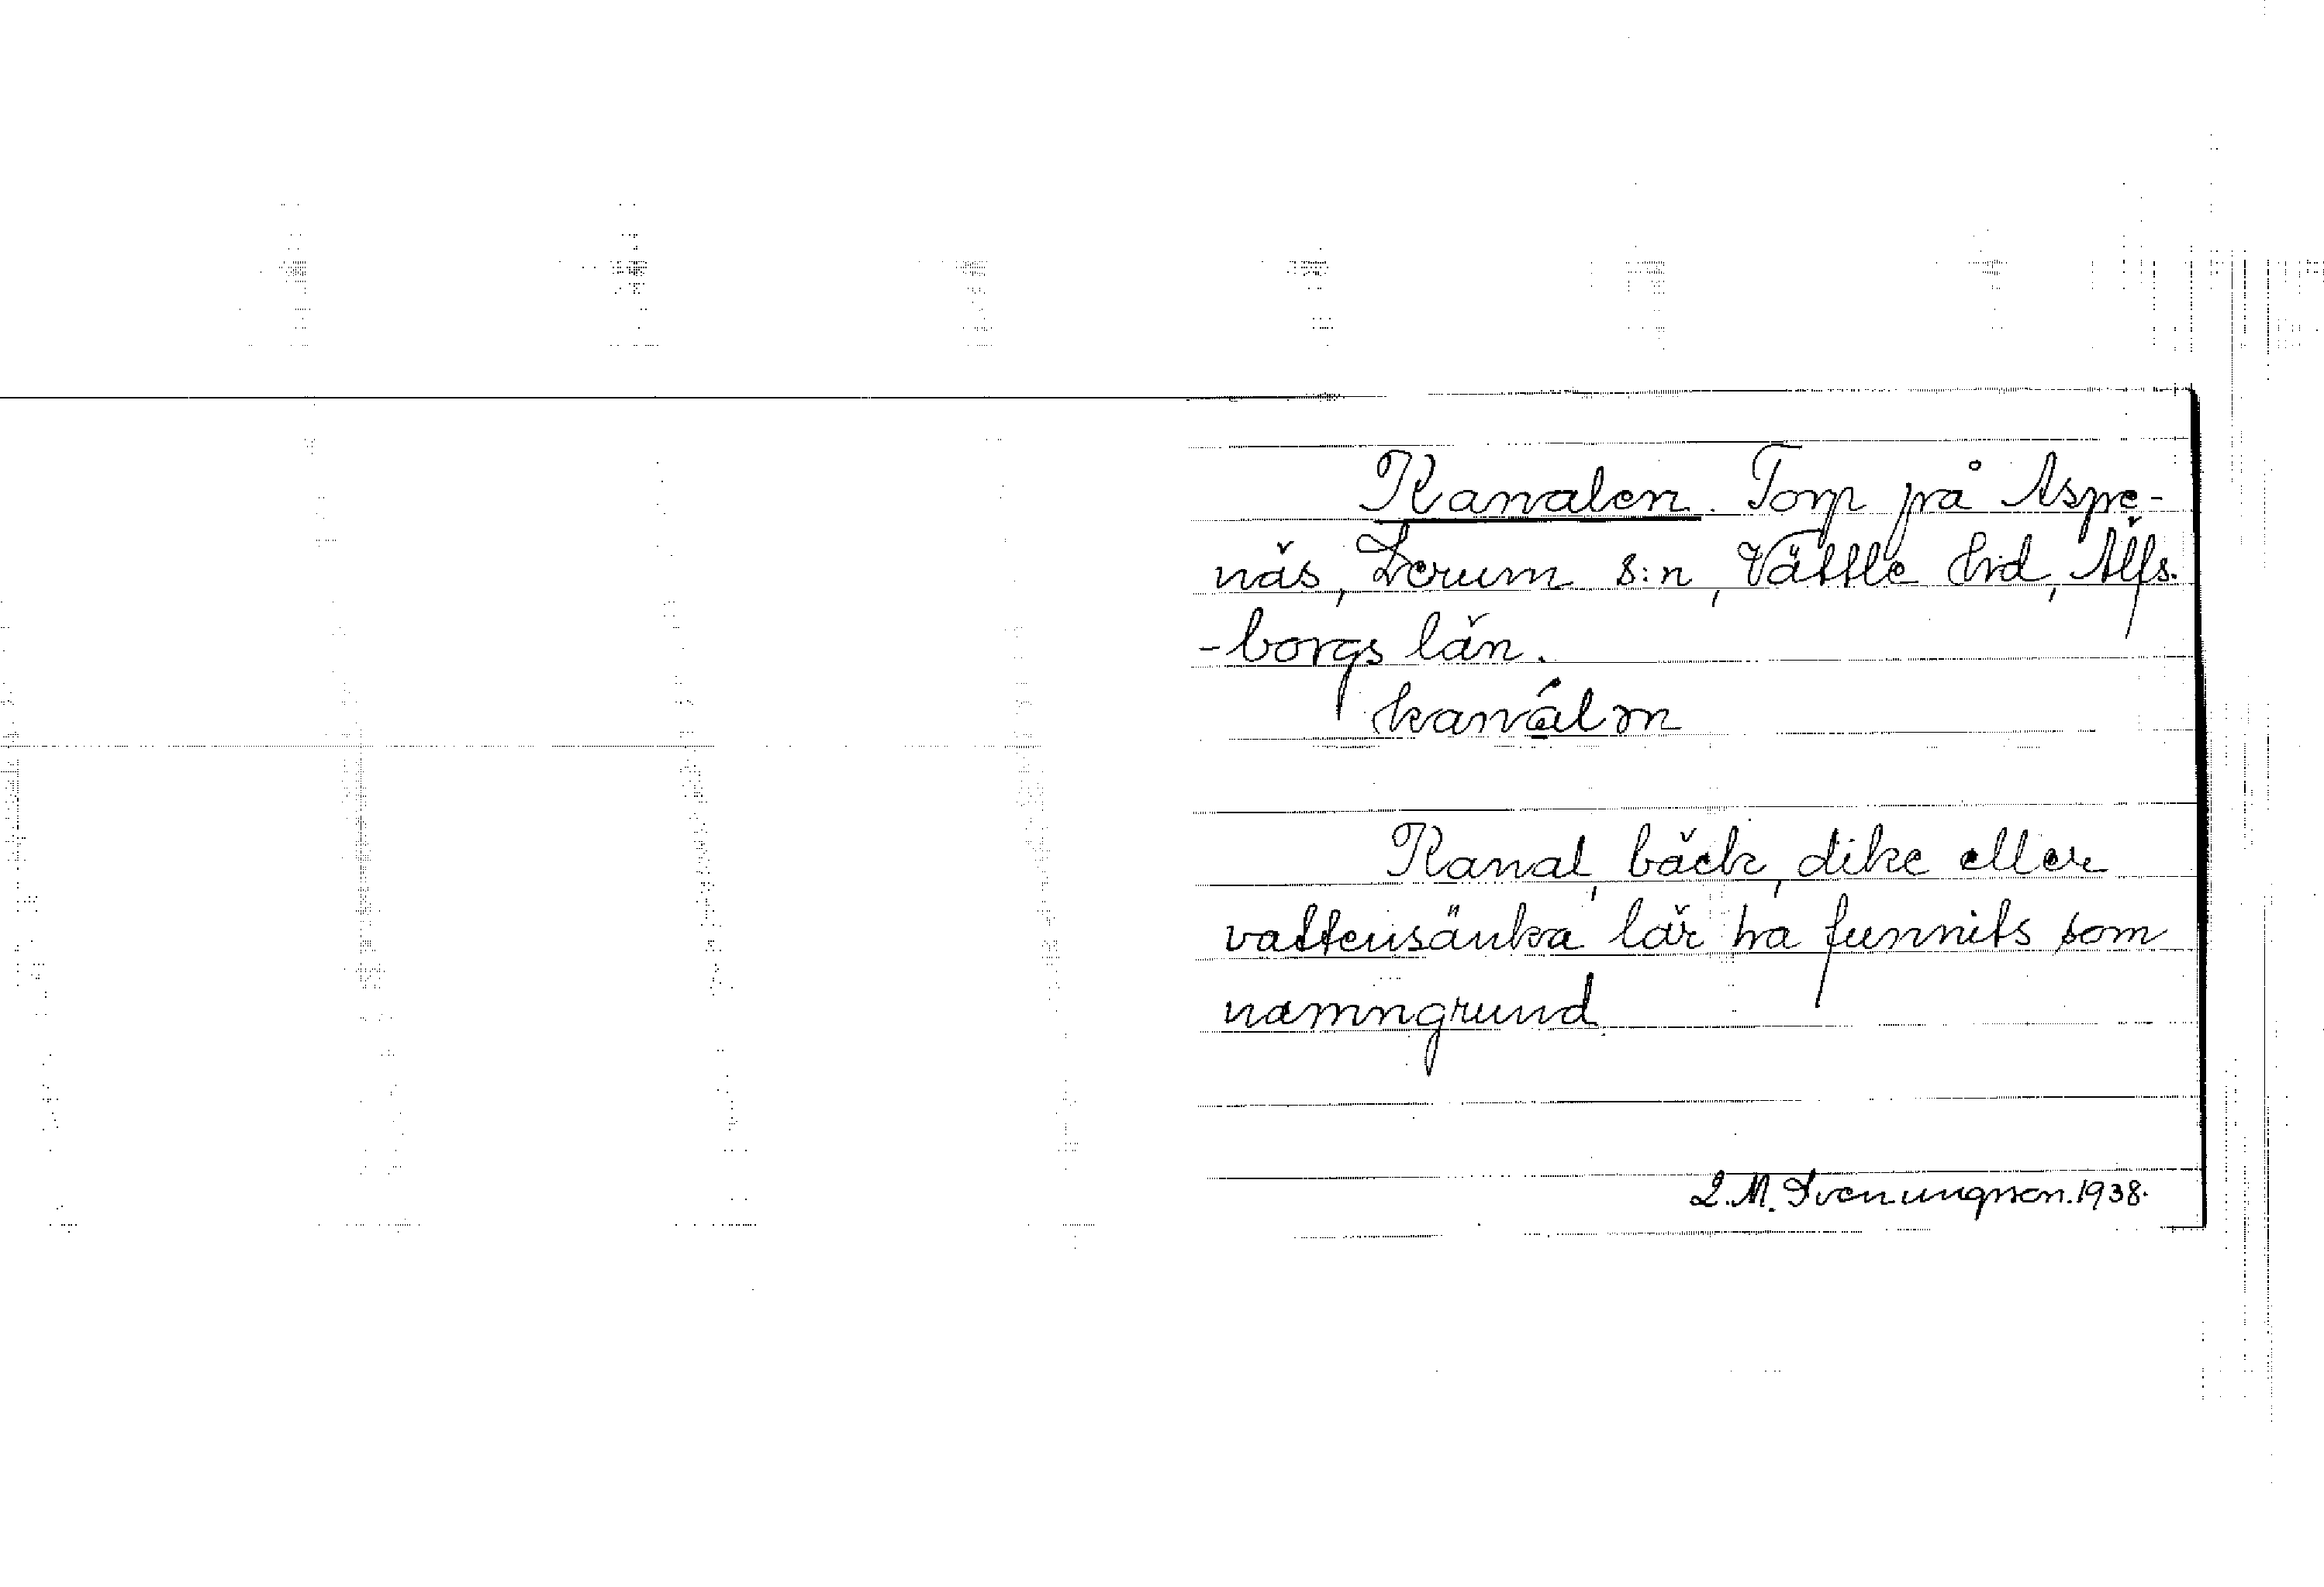 Kanalen. Torp på Aspe-
näs, Lerum s:n, Vättle hrd, Älfs.
-borgs län.
kanáln
Kanal, bäck, dike eller
vattensänka lär ha funnits som
namngrund.
L. M. Svenungsson. 1938.